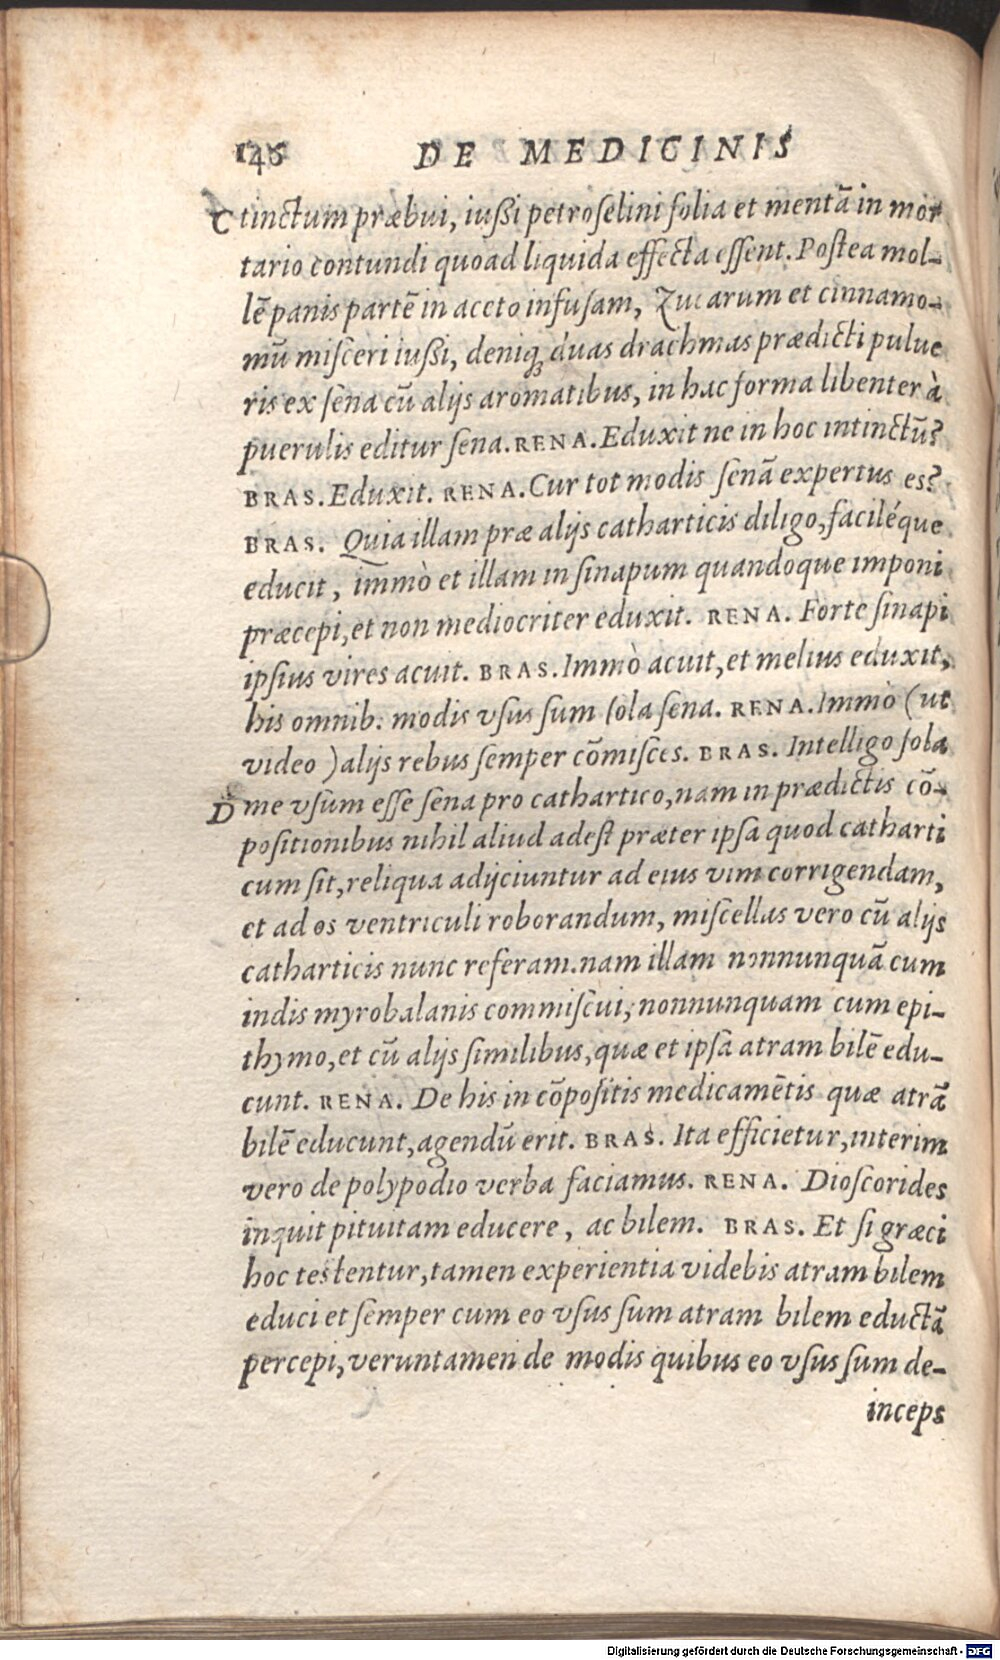 146 DE MEDICINIS
C tinctum præbui, iußi petroſelini folia et mentā in mor
tario contundi quoad liquida effecta eſſent. Poſtea mol-
lē panis partē in aceto infuſam, Zucarum et cinnamo-
mū miſceri iußi, deniq; duas drachmas prædicti pulue
ris ex ſena cū alijs aromatibus, in hac forma libenter à
puerulis editur ſena. RENA. Eduxit ne in hoc intinctū?
BRAS. Eduxit. RENA. Cur tot modis ſenā expertus es?
BRAS. Quia illam præ alijs catharticis diligo, faciléque
educit, immò et illam in ſinapum quandoque imponi
præcepi, et non mediocriter eduxit. RENA. Forte ſinapi
ipſius vires acuit. BRAS. Immò acuit, et melius eduxit,
his omnib. modis vſus ſum ſola ſena. RENA. Immò (ut
video) alijs rebus ſemper cōmiſces. BRAS. Intelligo ſola
D me vſum eſſe ſena pro cathartico, nam in prædictis cō-
poſitionibus nihil aliud adeſt præter ipſa quod catharti
cum ſit, reliqua adijciuntur ad eius vim corrigendam,
et ad os ventriculi roborandum, miſcellas vero cū alijs
catharticis nunc referam. nam illam nonnunquā cum
indis myrobalanis commiſcui, nonnunquam cum epi-
thymo, et cū alijs ſimilibus, quæ et ipſa atram bilē edu-
cunt. RENA. De his in cōpoſitis medicamētis quæ atrā
bilē educunt, agendū erit. BRAS. Ita efficietur, interim
vero de polypodio verba faciamus. RENA. Dioſcorides
inquit pituitam educere, ac bilem. BRAS. Et ſi græci
hoc teſtentur, tamen experientia videbis atram bilem
educi et ſemper cum eo vſus ſum atram bilem eductā
percepi, veruntamen de modis quibus eo vſus ſum de-
inceps
Digitalisierung gefördert durch die Deutsche Forschungsgemeinschaft - DFG